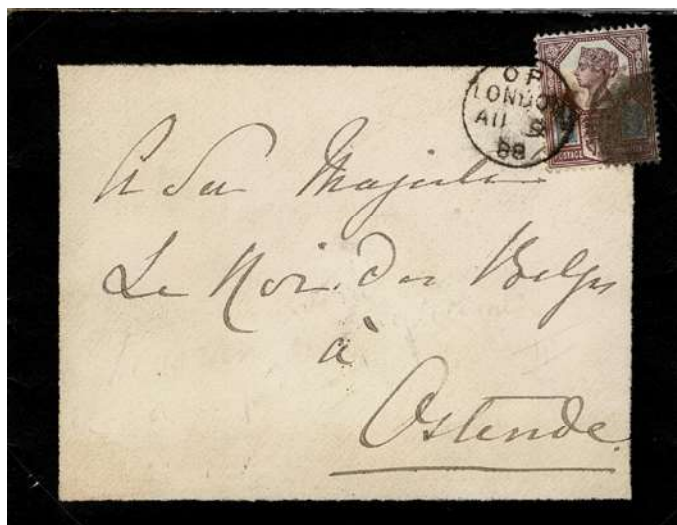 O P
LONDON
AU 9
88
POSTAGE
A Sa Majesté
Le Roi des Belges
à
Ostende